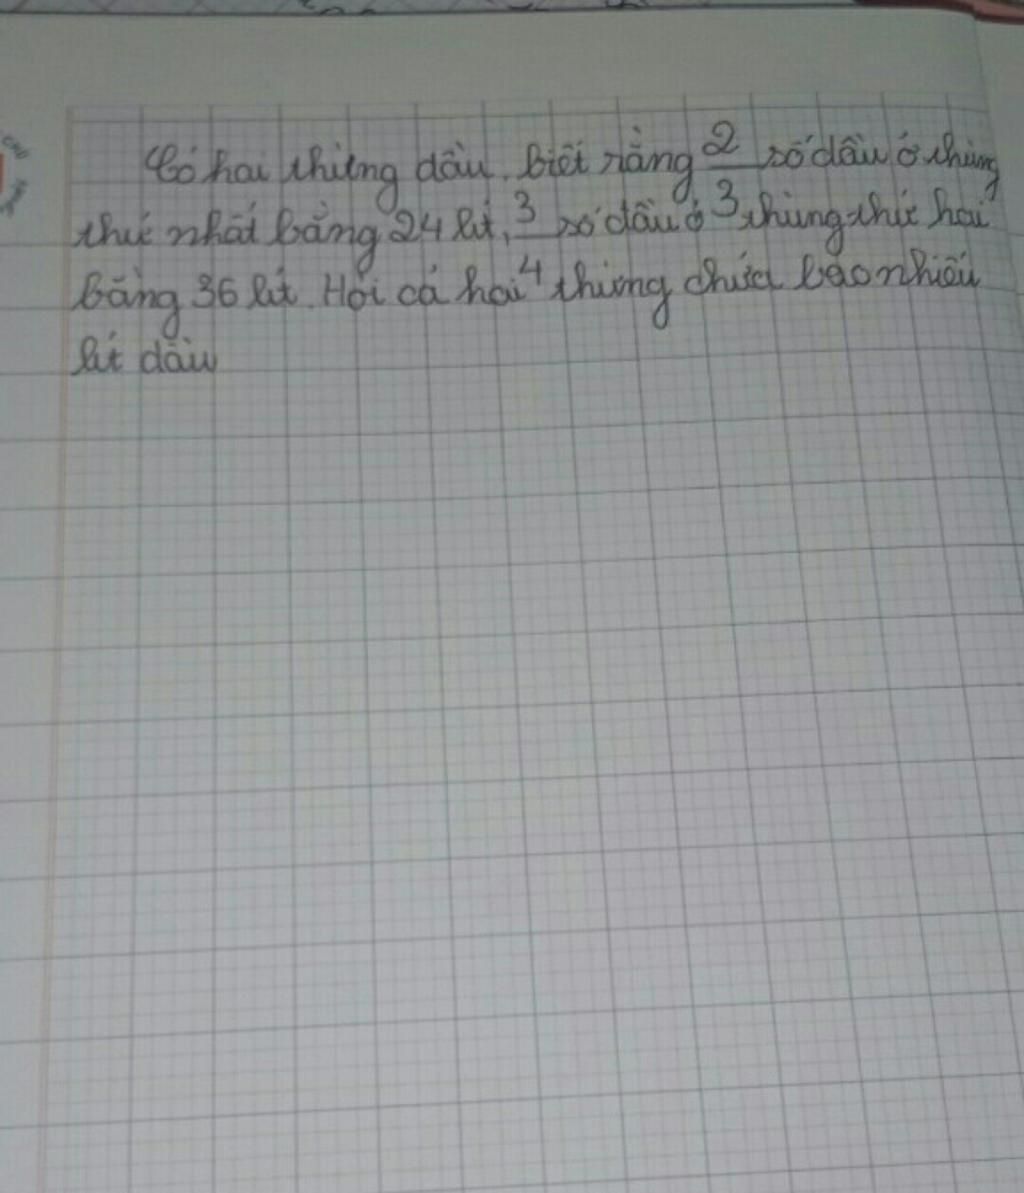 Có hai thùng dầu, biết rằng 2/3 số dầu ở thùng
thứ nhất bằng 24 lít, 3/4 số dầu ở thùng thứ hai
bằng 36 lít. Hỏi cả hai thùng chứa bao nhiêu
lít dầu